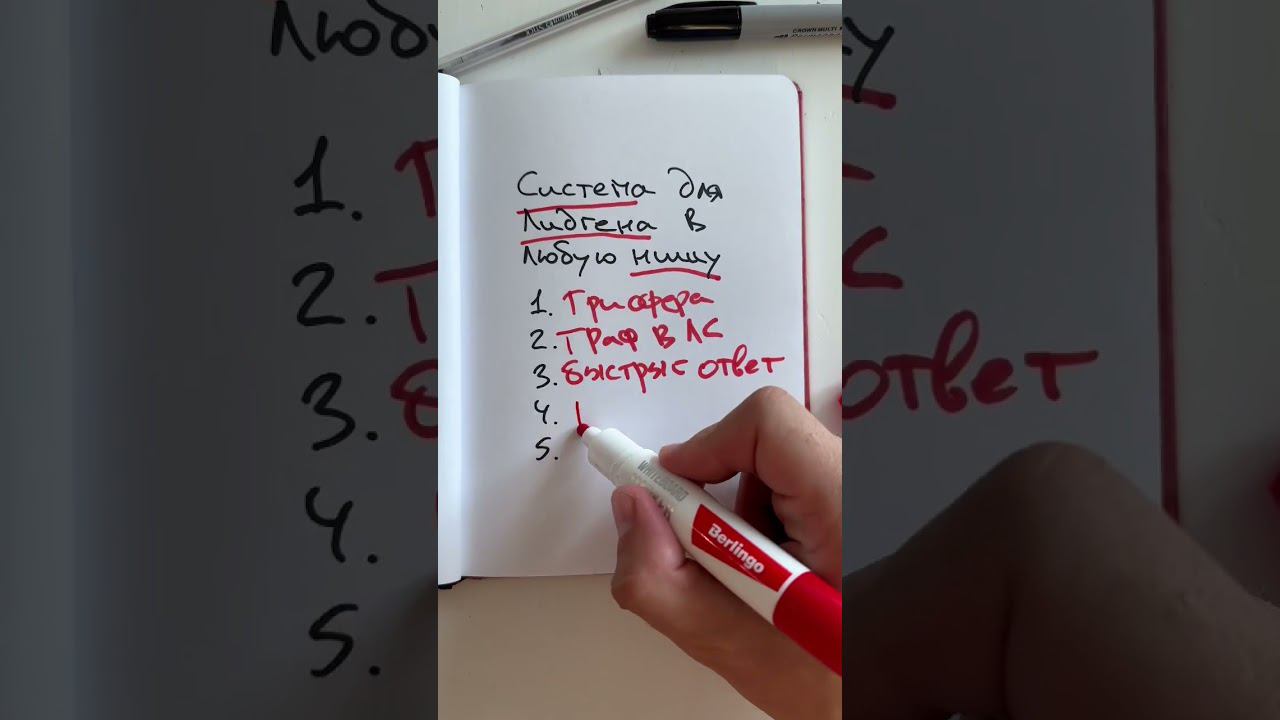 Система для
Лидгена в
любую нишу
1. Трисфера
2. Траф в ЛС
3. Быстрые ответ
4.
5.
WHITEBOARD
Berlingo
CROWN MULTI